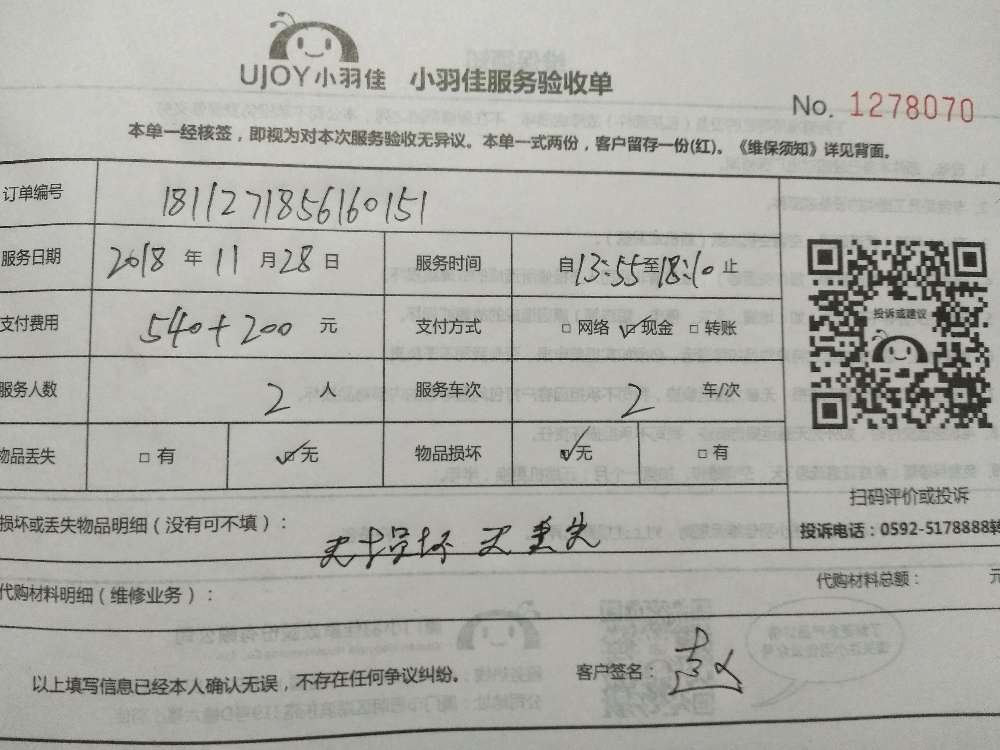 UJOY小羽佳 小羽佳服务验收单
No. 1278070
本单一经核签，即视为对本次服务验收无异议。本单一式两份，客户留存一份(红)。《维保须知》详见背面。
订单编号 1811271856160151
服务日期 2018 年 11 月 28 日 服务时间 自13:55至18:10止
支付费用 540+200 元 支付方式 □ 网络 ☑ 现金 □ 转账
服务人数 2 人 服务车次 2 车/次
物品丢失 □ 有 ☑ 无 物品损坏 ☑ 无 □ 有
投诉或建议
扫码评价或投诉
投诉电话：0592-5178888转
损坏或丢失物品明细（没有可不填）：
无损坏 无丢失
代购材料明细（维修业务）： 代购材料总额： 元
以上填写信息已经本人确认无误，不存在任何争议纠纷。 客户签名：